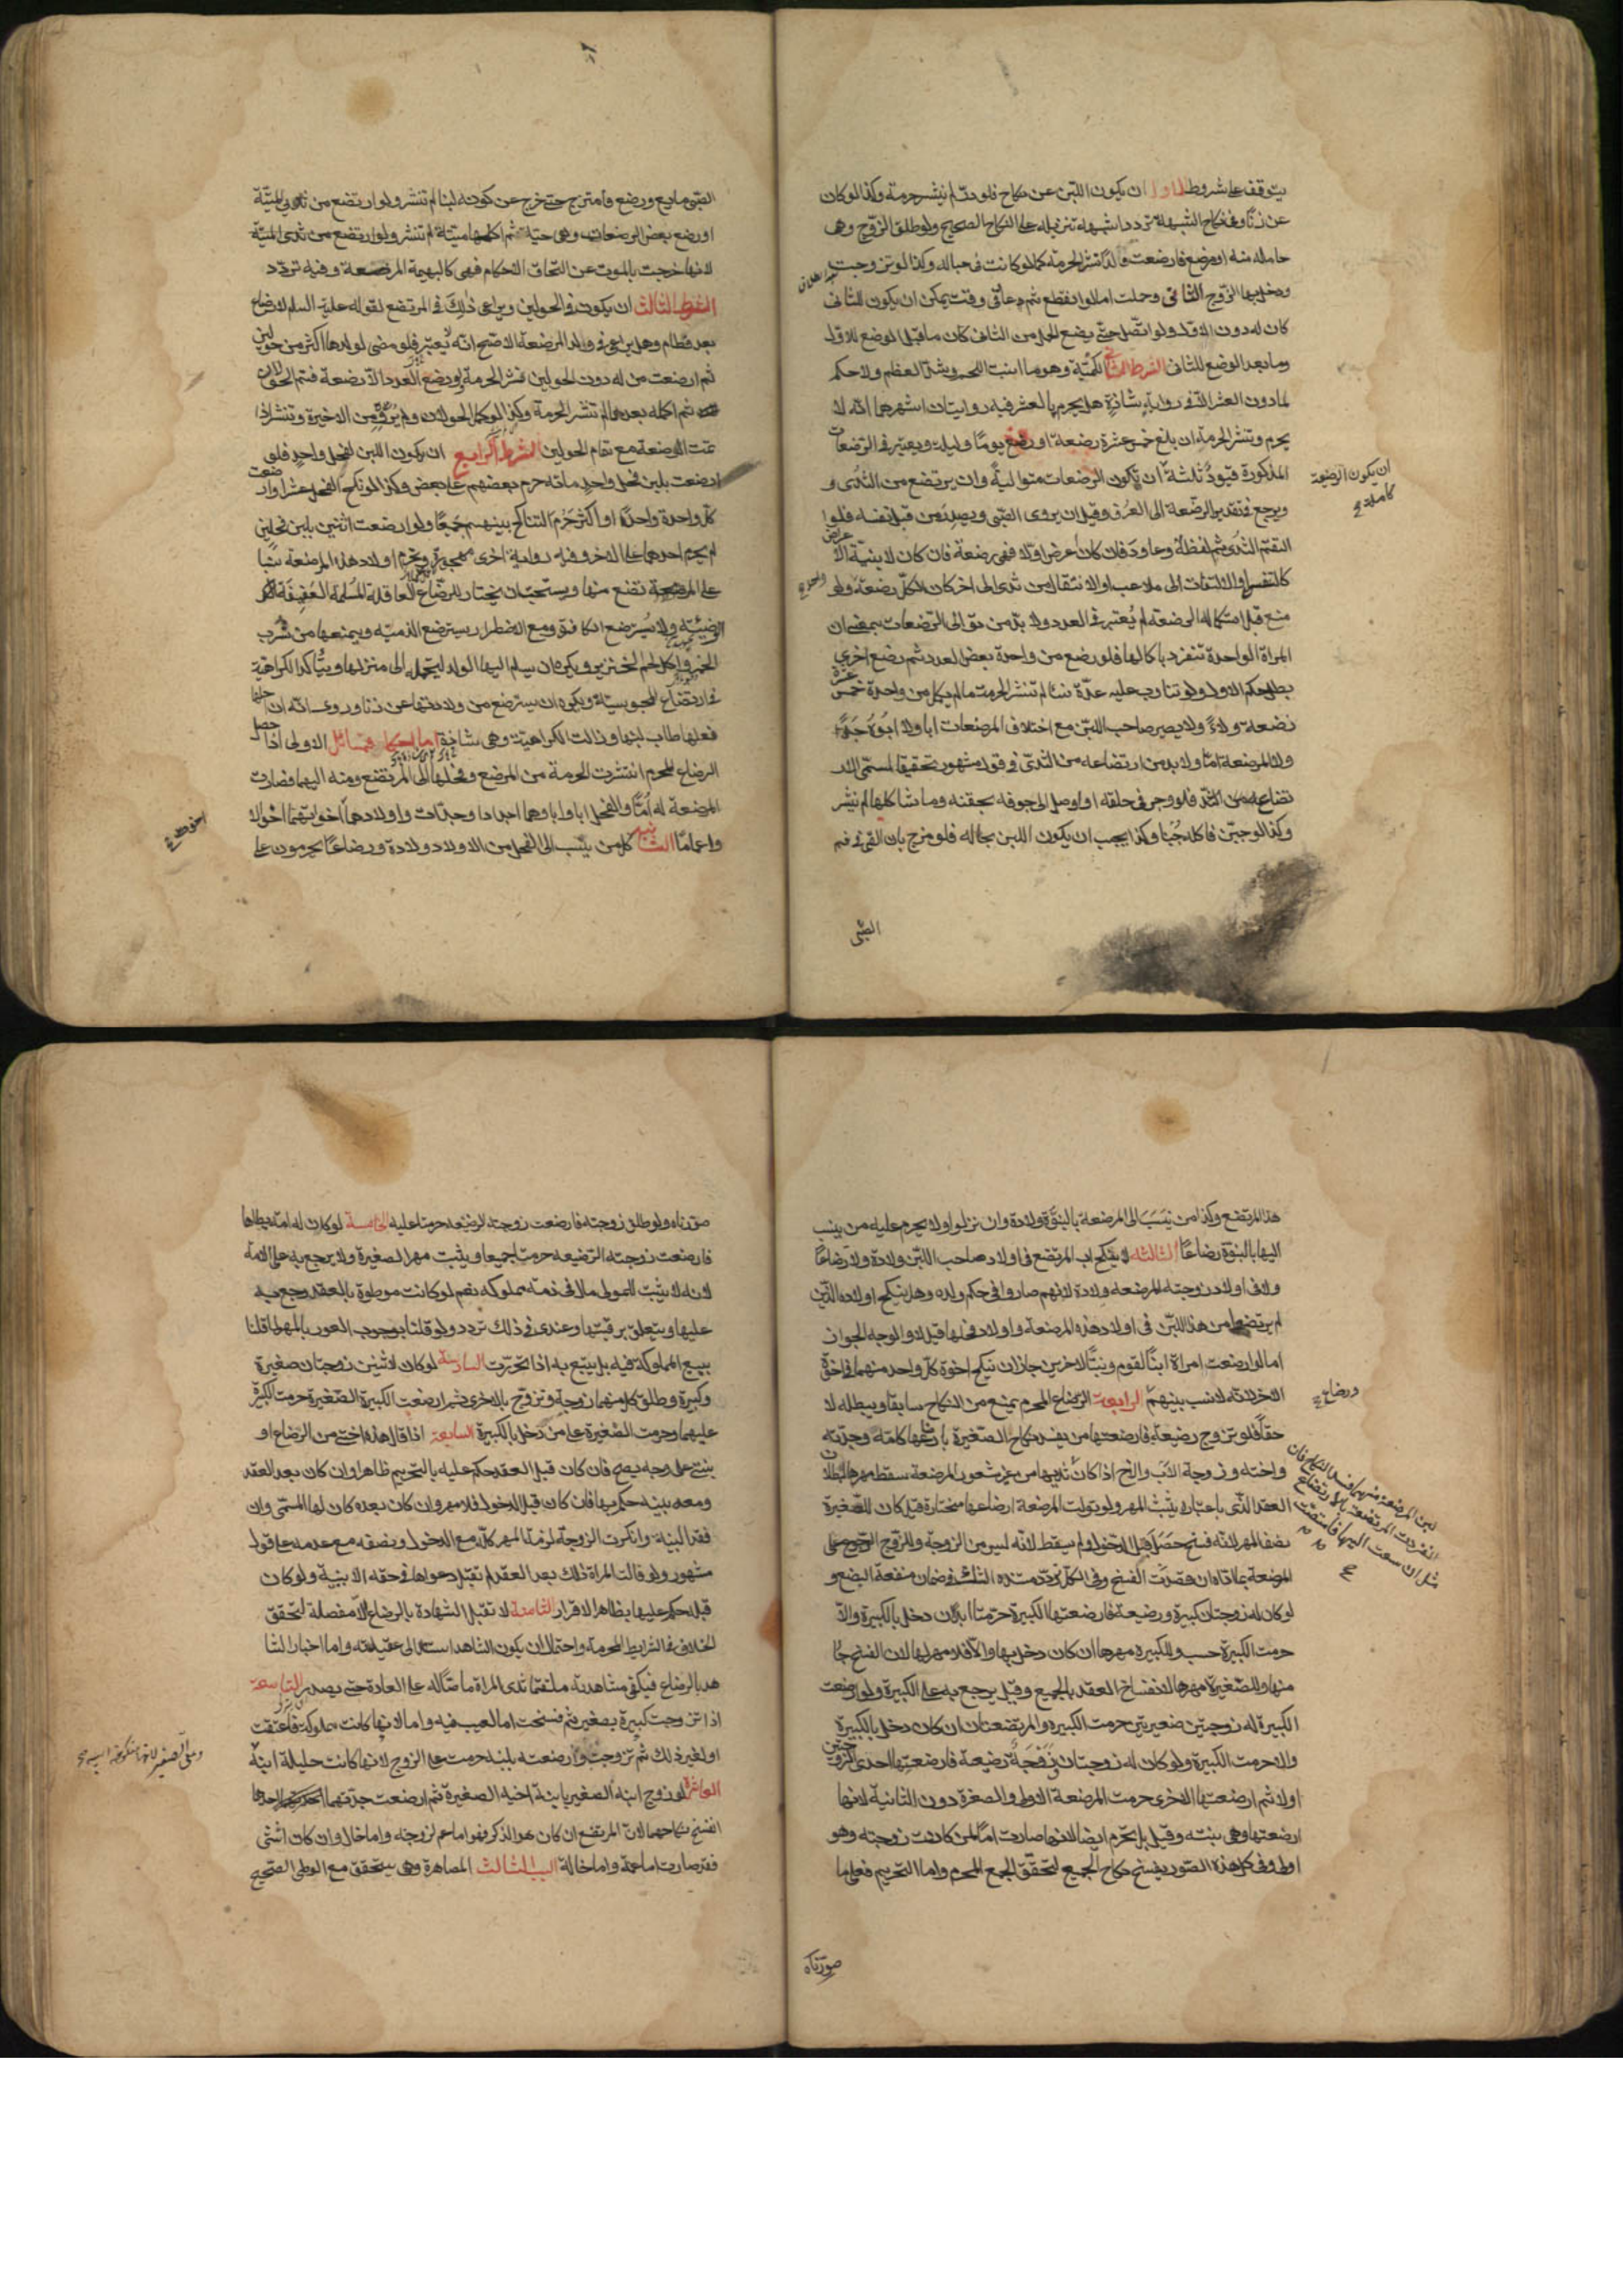 يتوقف على شروط الاول ان يكون اللبن عن نكاح فلو درّ لم ينشر حرمة وكذا لو كان
عن زنا وفي نكاح الشبهة تردد اشبهه تنزيله على النكاح الصحيح ولو طلق الزوج وهى
حامل منه او مرضع فارضعت ولدا نشر الحرمة كما لو كانت في حباله وكذا لو تزوجت
ودخل بها الزوج الثانى وحملت اما لو انقطع ثم عاد في وقت يمكن ان يكون للثانى
كان له دون الاول ولو اتصل حتى يضع الحمل من الثانى كان ما قبل الوضع للاول
وما بعد الوضع للثانى الشرط الثانى الكمية وهو ما انبت اللحم وشد العظم ولا حكم
لما دون العشر الا فى رواية شاذة وهل يحرم بالعشر فيه روايتان اشهرهما انه لا
يحرم وتنشر الحرمة ان بلغ خمس عشرة رضعة او رضع يوما وليلة ويعتبر فى الرضعات
المذكورة قيود ثلثة ان تكون الرضعات متوالية وان يرتضع من الثدى و
ان يكون الرضعة كاملة
ويرجع في تقدير الرضعة الى العرف وقيل ان يروى الصبى ويصدر من قبل نفسه فلو
التقم الثدى ثم لفظه وعاود فان كان اعرض اولا فهى رضعة فان كان لا بنية الا
كالتنفس او الالتفات الى ملاعب او الانتقال من ثدى الى اخر كان الكل رضعة ولو
منع قبل استكماله الرضعة لم يعتبر فى العدد ولا بد من توالى الرضعات بمعنى ان
المراة الواحدة تنفرد باكمالها فلو رضع من واحدة بعض العدد ثم رضع اخرى
بطل حكم الاول ولو تناوب عليه عدة نسا لم تنشر الحرمة ما لم يكمل من واحدة خمس عشرة
رضعة ولاء ولا يصير صاحب اللبن مع اختلاف المرضعات ابا ولا ابوه جدا
ولا المرضعة اما ولا بد من ارتضاعه من الثدى فى قول مشهور تحقيقا لمسمى الار
تضاع فلو وجر فى حلقه او اوصل الى جوفه بحقنه وما شاكلها لم ينشر
وكذا لو جبن فاكله جبنا وكذا يجب ان يكون اللبن بحاله فلو مزج بان القى فى فم
الصبى
الصبى مايع ورضع فامتزج حتى خرج عن كونه لبنا لم تنشر ولو ارتضع من ثدى الميتة
او رضع بعض الرضعات وهى حية ثم اكملها ميتة لم تنشر ولو ارتضع من ثدى الميتة
لانها خرجت بالموت عن التحاق الاحكام فهى كالبهيمة المرضعة وفيه تردد
الشرط الثالث ان يكون فى الحولين ويراعى ذلك فى المرتضع لقوله عليه السلم لا رضاع
بعد فطام وهل يراعى فى ولد المرضعة الاصح انه لا يعتبر فلو مضى لولدها اكثر من حولين
ثم ارضعت من له دون الحولين نشر الحرمة ولو رضع العدد الا رضعة فتم الحولان
ثم اكمله بعدهما لم تنشر الحرمة وكذا لو كمل الحولان ولم يرو من الاخيرة وتنشر اذا
تمت الرضعة مع تمام الحولين الشرط الرابع ان يكون اللبن لفحل واحد فلو
ارضعت بلبن فحل واحد ماتة حرم بعضهم على بعض وكذا لو نكح الفحل عشرا وارضعت
كل واحدة واحدا او اكثر حرم التناكح بينهم جميعا ولو ارضعت اثنين بلبن فحلين
لم يحرم احدهما على الاخر وفيه رواية اخرى مهجورة ويحرم اولاد هذه المرضعة نسبا
على المرتضع منها ويستحب ان يختار للرضاع العاقلة المسلمة العفيفة
الوضيئة ولا يسترضع الكافرة ومع الاضطرار يسترضع الذمية ويمنعها من شرب
الخمر واكل لحم الخنزير ويكره ان يسلم اليها الولد لتحمله الى منزلها ويتاكد الكراهية
فى ارتضاع المجوسية ويكره ان يسترضع من ولادتها عن زنا وروى انه ان احلها
فعلها طاب لبنها وزالت الكراهية وهى شاذة اما احكامه فمسائل الاولى اذا حصل
الرضاع المحرم انتشرت الحرمة من المرضع وفحلها الى المرتضع ومنه اليهما فصارت
المرضعة له اما والفحل ابا وابا وهما اجدادا وجدات واولادهما اخوة واخواتهما اخوالا
واعماما الثانية كل من ينتسب الى الفحل من الاولاد ولادة ورضاعا يحرمون على
هذا المرتضع وكذا من ينتسب الى المرضعة بالبنوة ولادة وان نزلوا ولا يحرم عليه من ينتسب
اليها بالبنوة رضاعا الثالثة لا ينكح اب المرتضع فى اولاد صاحب اللبن ولادة ولا رضاعا
ولا فى اولاد زوجته المرضعة ولادة لانهم صاروا فى حكم ولده وهل ينكح اولاده الذين
لم يرتضعوا من هذا اللبن فى اولاد هذه المرضعة واولاد فحلها قيل لا والوجه الجواز
اما لو ارضعت امراة ابنا لقوم وبنتا لاخرين جاز ان ينكح اخوة كل واحد منهما فى اخوة
الاخر لانه لا نسب بينهم الرابعة الرضاع المحرم يمنع من النكاح سابقا ويبطله لا
ورضاع
حقا فلو تزوج رضيعة فارضعتها من يفسد نكاح الصغيرة بارضاعها كامه وجدته
واخته وزوجة الاب والاخ اذا كان لبن المرضعة منهما فسد النكاح فان
انفردت المرتضعة بالارتضاع
مثل ان سعت اليها فامتصت
ثديها من غير شعور المرضعة سقط مهرها لبطلان
العقد الذى باعتباره يثبت المهر ولو تولت المرضعة ارضاعها مختارة قيل كان للصغيرة
نصف المهر لانه فسخ حصل قبل الدخول ولم يسقط لانه ليس من الزوجة وللزوج الرجوع على
المرضعة بما اداه ان قصدت الفسخ وفى الكل تردد مستنده الشك فى ضمان منفعة البضع و
لو كان له زوجتان كبيرة ورضيعة فارضعتها الكبيرة حرمتا ابدا ان دخل بالكبيرة والا
حرمت الكبيرة حسب وللكبيرة مهرها ان كان دخل بها والا فلا مهر لها لان الفسخ جا
منها وللصغيرة مهرها لانفساخ العقد بالجميع وقيل يرجع به على الكبيرة ولو ارضعت
الكبيرة له زوجتين صغيرتين حرمت الكبيرة والمرتضعتان ان كان دخل بالكبيرة
والا حرمت الكبيرة ولو كان له زوجتان وزوجة رضيعة فارضعتها احدى الزوجتين
اولا ثم ارضعتها الاخرى حرمت المرضعة الاولى والصغرة دون الثانية لانها
ارضعتها وهى بنته وقيل بل تحرم ايضا لانها صارت اما لمن كانت زوجته وهو
اولى وفى كل هذه الصور يفسخ نكاح الجميع لتحقق الجمع المحرم واما التحريم فعلى ما
صورناه
صورناه ولو طلق زوجته فارضعت زوجته الرضيعة حرمتا عليه الخامسة لو كان له امة يطاها
فارضعت زوجته الرضيعة حرمتا جميعا ويثبت مهر الصغيرة ولا يرجع به على الامة
لانه لا يثبت للمولى مال فى ذمة مملوكه نعم لو كانت موطوة بالعقد رجع به
عليها ويتعلق برقبتها وعندى فى ذلك تردد ولو قلنا بوجوب العود بالمهر لما قلنا
ببيع المملوكة فيه بل يتبع به اذا تحررت السادسة لو كان لاثنين زوجتان صغيرة
وكبيرة وطلق كل منهما زوجة وتزوج بالاخرى ثم ارضعت الكبيرة الصغيرة حرمت الكبيرة
عليهما وحرمت الصغيرة على من دخل بالكبيرة السابعة اذا قال هذه اختى من الرضاع او
بنتى على وجه يصح فان كان قبل العقد حكم عليه بالتحريم ظاهرا وان كان بعد العقد
ومعه بينة حكم بها فان كان قبل الدخول فلا مهر وان كان بعده كان لها المسمى وان
فقد البينة وانكرت الزوجة لزمه المهر كله مع الدخول ونصفه مع عدمه على قول
مشهور ولو قالت المراة ذلك بعد العقد لم تقبل دعواها فى حقه الا ببينة ولو كان
قبله حكم عليها بظاهر الاقرار الثامنة لا تقبل الشهادة بالرضاع الا مفصلة لتحقق
الخلاف فى الشرايط المحرمة واحتمال ان يكون الشاهد استند الى عقيدته واما اخبار الشا
هد بالرضاع فيكفى مشاهدته ملتقما ثدى المراة ماصا له على العادة حتى يصدر التاسعة
اذا تزوجت كبيرة بصغير ثم فسخت اما لعيب فيه واما لانها كانت مملوكة فاعتقت
او لغير ذلك ثم تزوجت وارضعته بلبنه حرمت على الزوج لانها كانت حليلة ابنه
وعلى الصغير لانها منكوحة ابيه
العاشرة لو زوج ابنه الصغير بابنة اخيه الصغيرة ثم ارضعت جدتهما احدهما
انفسخ نكاحهما لان المرتضع ان كان هو الذكر فهو اما عم لزوجته واما خال وان كان انثى
فقد صارت اما عمة واما خالة السبب الثالث المصاهرة وهى يتحقق مع الوطى الصحيح